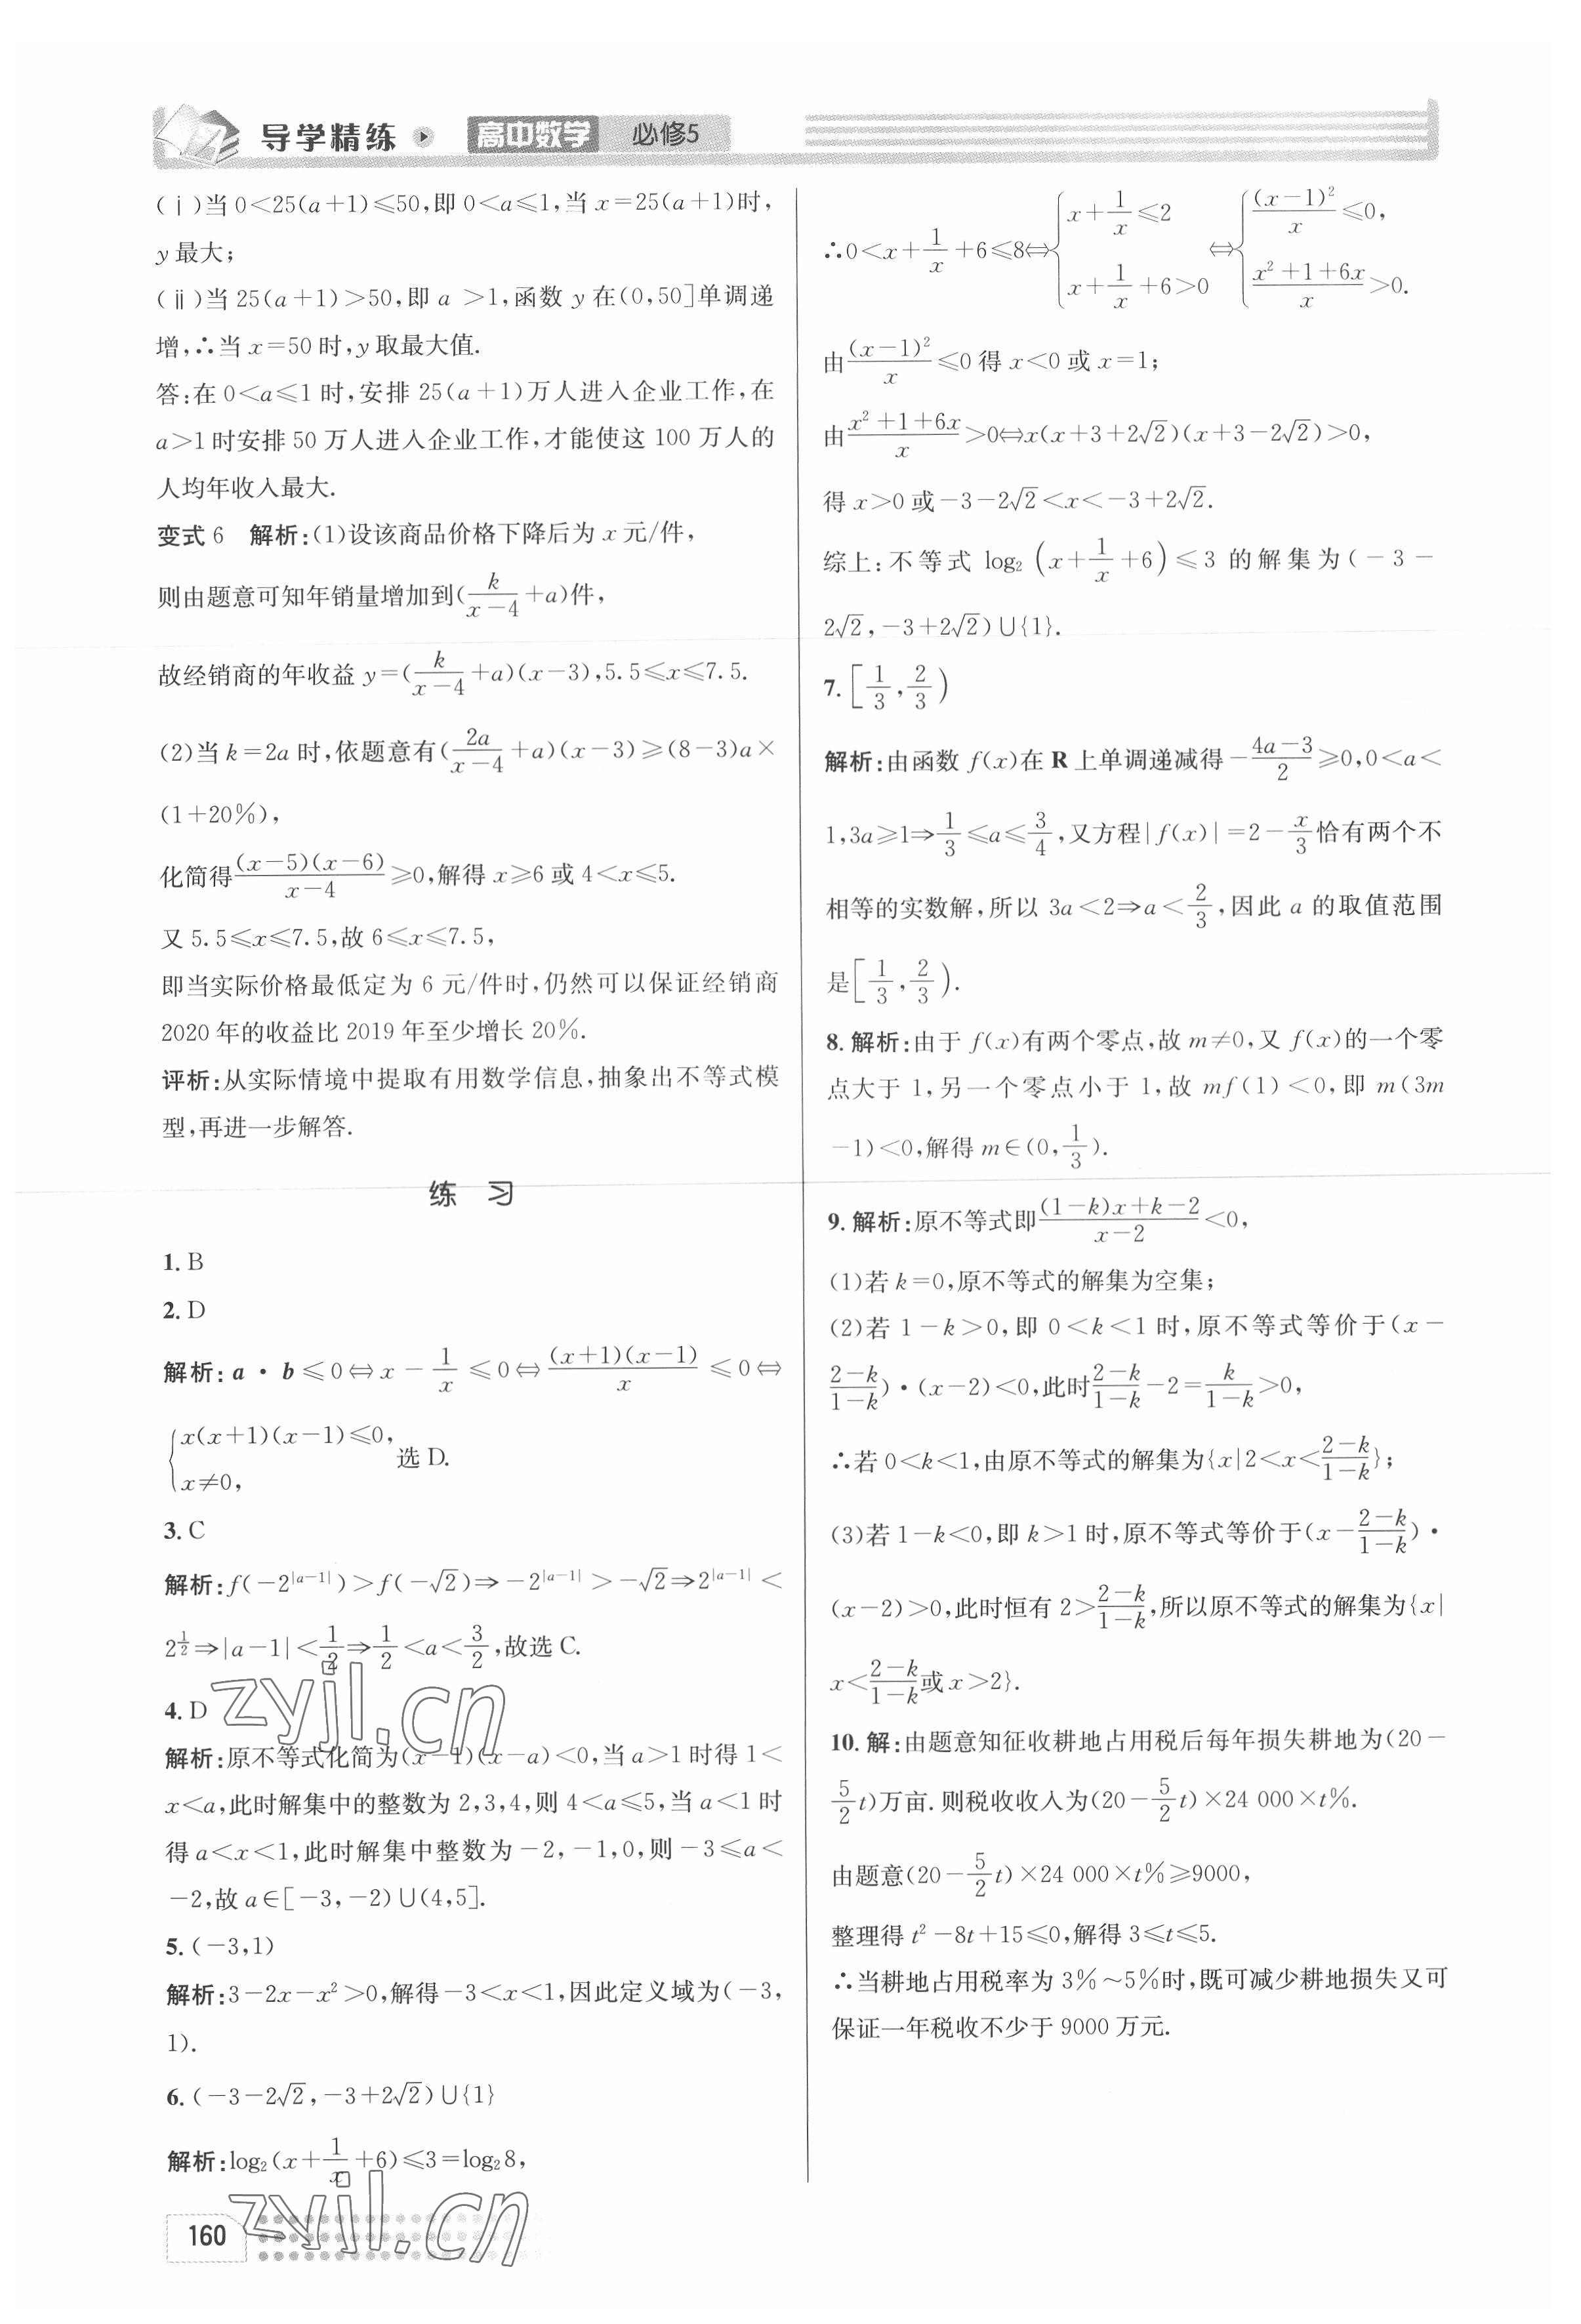 导学精练 高中数学 必修5
(ⅰ)当0<25(a+1)⩽50,即0<a⩽1,当x=25(a+1)时,
y最大;
(ⅱ)当25(a+1)>50,即a >1,函数y在(0,50]单调递
增,∴当x=50时,y取最大值.
答:在0<a⩽1时,安排25(a+1)万人进入企业工作,在
a>1时安排50万人进入企业工作,才能使这100万人的
人均年收入最大.
变式6 解析:(1)设该商品价格下降后为x元/件,
则由题意可知年销量增加到($\frac{k}{x-4}$+a)件,
故经销商的年收益y=($\frac{k}{x-4}$+a)(x-3),5.5⩽x⩽7.5.
(2)当k=2a时,依题意有($\frac{2a}{x-4}$+a)(x-3)⩾(8-3)a×
(1+20%),
化简得$\frac{(x-5)(x-6)}{x-4}$⩾0,解得x⩾6或4<x⩽5.
又5.5⩽x⩽7.5,故6⩽x⩽7.5,
即当实际价格最低定为6元/件时,仍然可以保证经销商
2020年的收益比2019年至少增长20%.
评析:从实际情境中提取有用数学信息,抽象出不等式模
型,再进一步解答.
练 习
1. B
2. D
解析:a·b⩽0⇔x-$\frac{1}{x}$⩽0⇔$\frac{(x+1)(x-1)}{x}$⩽0⇔
$\begin{cases}x(x+1)(x-1)⩽0,\\x≠0,\end{cases}$选D.
3. C
解析:f(-2$^{|a-1|}$)>f(-√2)⇒-2$^{|a-1|}$>-√2⇒2$^{|a-1|}$<
2$^{\frac{1}{2}}$⇒|a-1|<$\frac{1}{2}$⇒$\frac{1}{2}$<a<$\frac{3}{2}$,故选C.
4. D
解析:原不等式化简为(x-1)(x-a)<0,当a>1时得1<
x<a,此时解集中的整数为2,3,4,则4<a⩽5,当a<1时
得a<x<1,此时解集中整数为-2,-1,0,则-3⩽a<
-2,故a∈[-3,-2)∪(4,5].
5. (-3,1)
解析:3-2x-x²>0,解得-3<x<1,因此定义域为(-3,
1).
6. (-3-2√2,-3+2√2)∪{1}
解析:log₂(x+$\frac{1}{x}$+6)⩽3=log₂8,
∴0<x+$\frac{1}{x}$+6⩽8⇔$\begin{cases}x+\frac{1}{x}⩽2\\x+\frac{1}{x}+6>0\end{cases}$⇔$\begin{cases}\frac{(x-1)^2}{x}⩽0,\\\frac{x^2+1+6x}{x}>0.\end{cases}$
由$\frac{(x-1)^2}{x}$⩽0得x<0或x=1;
由$\frac{x^2+1+6x}{x}$>0⇔x(x+3+2√2)(x+3-2√2)>0,
得x>0或-3-2√2<x<-3+2√2.
综上:不等式log₂(x+$\frac{1}{x}$+6)⩽3的解集为(-3-
2√2,-3+2√2)∪{1}.
7. [$\frac{1}{3}$,$\frac{2}{3}$)
解析:由函数f(x)在R上单调递减得-$\frac{4a-3}{2}$⩾0,0<a<
1,3a⩾1⇒$\frac{1}{3}$⩽a⩽$\frac{3}{4}$,又方程|f(x)|=2-$\frac{x}{3}$恰有两个不
相等的实数解,所以3a<2⇒a<$\frac{2}{3}$,因此a的取值范围
是[$\frac{1}{3}$,$\frac{2}{3}$).
8. 解析:由于f(x)有两个零点,故m≠0,又f(x)的一个零
点大于1,另一个零点小于1,故mf(1)<0,即m(3m
-1)<0,解得m∈(0,$\frac{1}{3}$).
9. 解析:原不等式即$\frac{(1-k)x+k-2}{x-2}$<0,
(1)若k=0,原不等式的解集为空集;
(2)若1-k>0,即0<k<1时,原不等式等价于(x-
$\frac{2-k}{1-k}$)·(x-2)<0,此时$\frac{2-k}{1-k}$-2=$\frac{k}{1-k}$>0,
∴若0<k<1,由原不等式的解集为{x|2<x<$\frac{2-k}{1-k}$};
(3)若1-k<0,即k>1时,原不等式等价于(x-$\frac{2-k}{1-k}$)·
(x-2)>0,此时恒有2>$\frac{2-k}{1-k}$,所以原不等式的解集为{x|
x<$\frac{2-k}{1-k}$或x>2}.
10. 解:由题意知征收耕地占用税后每年损失耕地为(20-
$\frac{5}{2}$t)万亩.则税收收入为(20-$\frac{5}{2}$t)×24 000×t%.
由题意(20-$\frac{5}{2}$t)×24 000×t%⩾9000,
整理得t²-8t+15⩽0,解得3⩽t⩽5.
∴当耕地占用税率为3%~5%时,既可减少耕地损失又可
保证一年税收不少于9000万元.
zyjl.cn
zyjl.cn
160